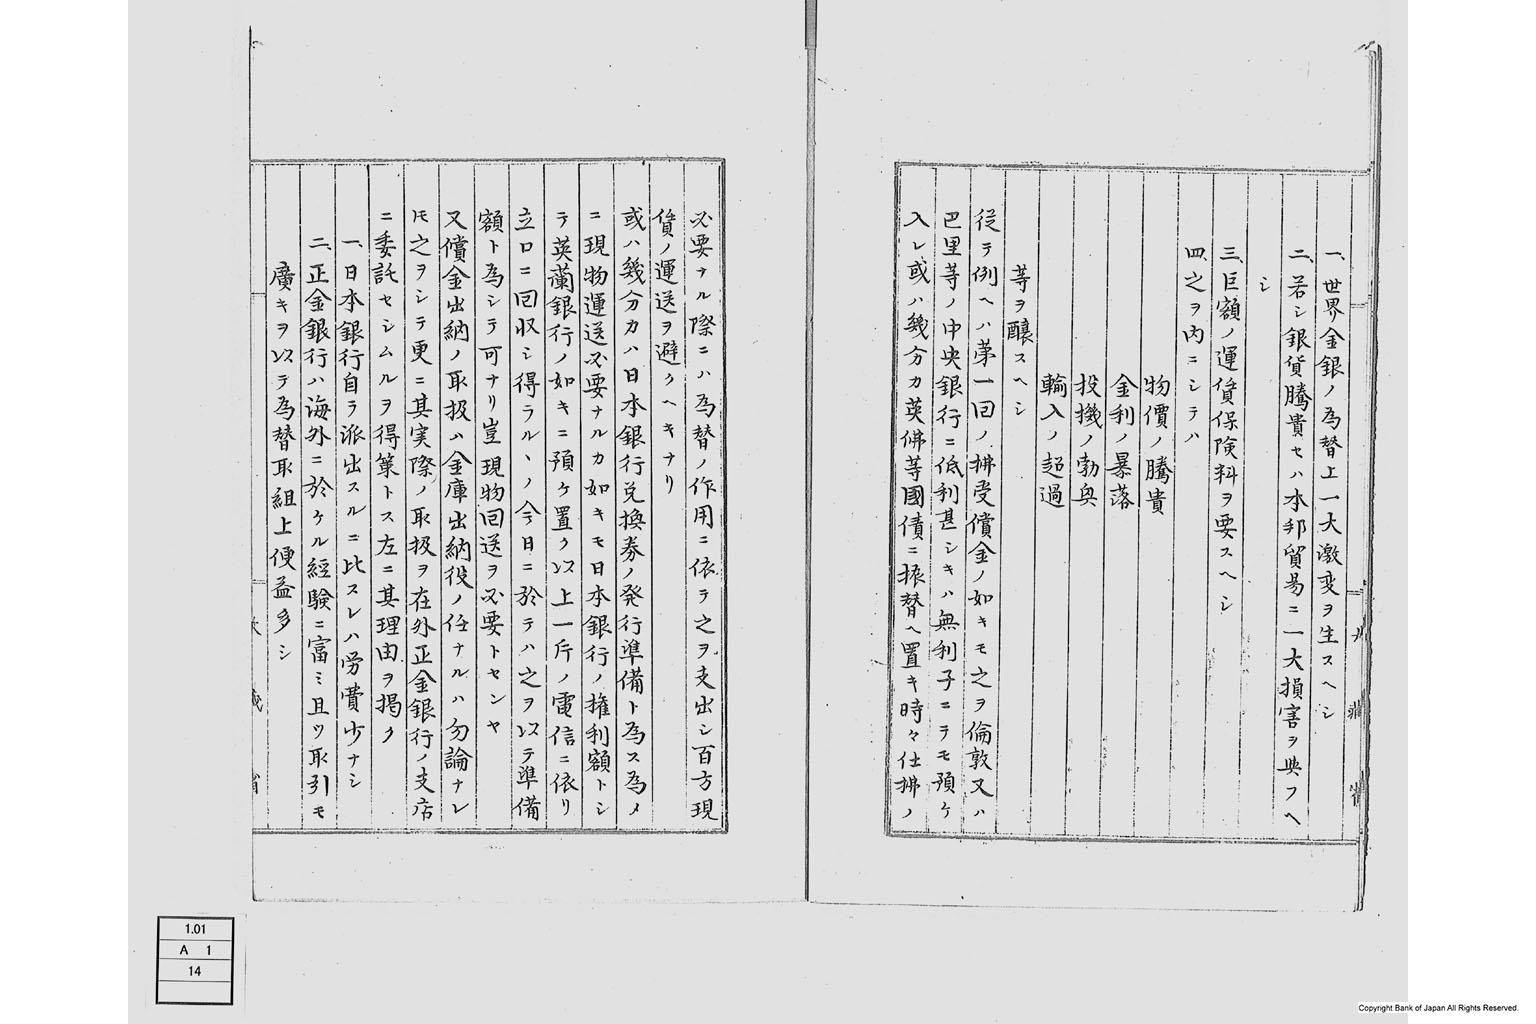 一、世界金銀ノ為替上一大激変ヲ生スヘシ
二、若シ銀貨騰貴セハ本邦貿易ニ一大損害ヲ與フヘ
シ
三、巨額ノ運賃保険料ヲ要スヘシ
四、之ヲ内ニシテハ
物價ノ騰貴
金利ノ暴落
投機ノ勃興
輸入ノ超過
等ヲ醸スヘシ
従テ例ヘハ第一回ノ拂受償金ノ如キモ之ヲ倫敦又ハ
巴里等ノ中央銀行ニ低利甚シキハ無利子ニテモ預ケ
入レ或ハ幾分カ英佛等國債ニ振替ヘ置キ時々仕拂ノ
必要ナル際ニハ為替ノ作用ニ依テ之ヲ支出シ百方現
貨ノ運送ヲ避クヘキナリ
或ハ幾分カハ日本銀行兌換券ノ発行準備ト為ス為メ
ニ現物運送必要ナルカ如キモ日本銀行ノ権利額トシ
テ英蘭銀行ノ如キニ預ケ置ク以上一片ノ電信ニ依リ
立ロニ回収シ得ラルヽノ今日ニ於テハ之ヲ以テ準備
額ト為シテ可ナリ豈現物回送ヲ必要トセンヤ
又償金出納ノ取扱ハ金庫出納役ノ任ナルハ勿論ナレ
トモ之ヲシテ更ニ其実際ノ取扱ヲ在外正金銀行ノ支店
ニ委託セシムルヲ得策トス左ニ其理由ヲ掲ク
一、日本銀行自ラ派出スルニ比スレハ労費少ナシ
二、正金銀行ハ海外ニ於ケル経験ニ富ミ且ツ取引モ
廣キヲ以テ為替取組上便益多シ
大藏省
1.01
A 1
14
Copyright Bank of Japan All Rights Reserved.